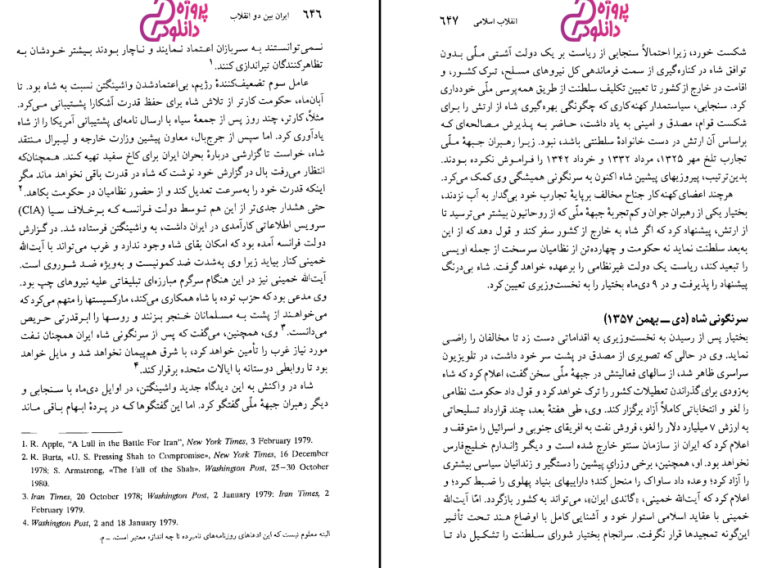 ۶۴۶ ایران بین دو انقلاب
پروژه
دانلود
نمی‌توانستند به سربازان اعتماد نمایند و ناچار بودند بیشتر خودشان به
تظاهرکنندگان تیراندازی کنند.۱
عامل سوم تضعیف‌کنندهٔ رژیم، بی‌اعتمادشدن واشینگتن نسبت به شاه بود. تا
آبان‌ماه، حکومت کارتر از تلاش شاه برای حفظ قدرت آشکارا پشتیبانی می‌کرد.
مثلاً، کارتر، چند روز پس از جمعهٔ سیاه با ارسال نامه‌ای پشتیبانی آمریکا را از شاه
یادآوری کرد. اما سپس از جرج‌بال، معاون پیشین وزارت خارجه و لیبرال منتقد
شاه، خواست تا گزارشی دربارهٔ بحران ایران برای کاخ سفید تهیه کند. همچنان‌که
انتظار می‌رفت بال در گزارش خود نوشت که شاه در قدرت باقی نخواهد ماند مگر
اینکه قدرت خود را به‌سرعت تعدیل کند و از حضور نظامیان در حکومت بکاهد.۲
حتی هشدار جدی‌تر از این هم توسط دولت فرانسه که برخلاف سیا (CIA)
سرویس اطلاعاتی کارآمدی در ایران داشت، به واشینگتن فرستاده شد. در گزارش
دولت فرانسه آمده بود که امکان بقای شاه وجود ندارد و غرب می‌تواند با آیت‌الله
خمینی کنار بیاید زیرا وی به‌شدت ضد کمونیست و به‌ویژه ضد شوروی است.
آیت‌الله خمینی نیز در این هنگام سرگرم مبارزه‌ای تبلیغاتی علیه نیروهای چپ بود.
وی مدعی بود که حزب توده با شاه همکاری می‌کند، مارکسیستها را متهم می‌کرد که
می‌خواهند از پشت به مسلمانان خنجر بزنند و روسها را ابرقدرتی حریص
می‌دانست.۳ وی، همچنین، می‌گفت که پس از سرنگونی شاه ایران همچنان نفت
مورد نیاز غرب را تأمین خواهد کرد، با شرق هم‌پیمان نخواهد شد و مایل خواهد
بود تا روابطی دوستانه با ایالات متحده برقرار کند.۴
شاه در واکنش به این دیدگاه جدید واشینگتن، در اوایل دی‌ماه با سنجابی و
دیگر رهبران جبههٔ ملّی گفتگو کرد. اما این گفتگوها که در پردهٔ ابهام باقی ماند
1. R. Apple, "A Lull in the Battle For Iran", New York Times, 3 February 1979.
2. R. Burts, «U. S. Pressing Shah to Compromise», New York Times, 16 December
1978; S. Armstrong, «The Fall of the Shah», Washington Post, 25-30 October
1980.
3. Iran Times, 20 October 1978; Washington Post, 2 January 1979; Iran Times, 2
February 1979.
4. Washington Post, 2 and 18 January 1979.
البته معلوم نیست که این ادعاهای روزنامه‌های نامبرده تا چه اندازه معتبر است. ـ م.
انقلاب اسلامی ۶۴۷
پروژه
دانلود
شکست خورد، زیرا احتمالاً سنجابی از ریاست بر یک دولت آشتی ملّی بدون
توافق شاه در کناره‌گیری از سمت فرماندهی کل نیروهای مسلح، ترک کشور، و
اقامت در خارج از کشور تا تعیین تکلیف سلطنت از طریق همه‌پرسی ملّی خودداری
کرد. سنجابی، سیاستمدار کهنه‌کاری که چگونگی بهره‌گیری شاه از ارتش را برای
شکست قوام، مصدق و امینی به یاد داشت، حاضر به پذیرش مصالحه‌ای که
براساس آن ارتش در دست خانوادهٔ سلطنتی باشد، نبود. زیرا رهبران جبههٔ ملّی
تجارب تلخ مهر ۱۳۲۵، مرداد ۱۳۳۲ و خرداد ۱۳۴۲ را فراموش نکرده بودند.
بدین‌ترتیب، پیروزیهای پیشین شاه اکنون به سرنگونی همیشگی وی کمک می‌کرد.
هرچند اعضای کهنه‌کار جناح مخالف برپایهٔ تجارب خود بی‌گدار به آب نزدند،
بختیار یکی از رهبران جوان و کم‌تجربهٔ جبههٔ ملّی که از روحانیون بیشتر می‌ترسید تا
از ارتش، پیشنهاد کرد که اگر شاه به خارج از کشور سفر کند و قول دهد که از این
به‌بعد سلطنت نماید نه حکومت و چهارده‌تن از نظامیان سرسخت از جمله اویسی
را تبعید کند، ریاست یک دولت غیرنظامی را برعهده خواهد گرفت. شاه بی‌درنگ
پیشنهاد را پذیرفت و در ۹ دی‌ماه بختیار را به نخست‌وزیری تعیین کرد.
سرنگونی شاه (دی ــ بهمن ۱۳۵۷)
بختیار پس از رسیدن به نخست‌وزیری به اقداماتی دست زد تا مخالفان را راضی
نماید. وی در حالی که تصویری از مصدق در پشت سر خود داشت، در تلویزیون
سراسری ظاهر شد، از سالهای فعالیتش در جبههٔ ملّی سخن گفت، اعلام کرد که شاه
به‌زودی برای گذراندن تعطیلات کشور را ترک خواهد کرد و قول داد حکومت نظامی
را لغو و انتخاباتی کاملاً آزاد برگزار کند. وی، طی هفتهٔ بعد، چند قرارداد تسلیحاتی
به ارزش ۷ میلیارد دلار را لغو، فروش نفت به افریقای جنوبی و اسرائیل را متوقف و
اعلام کرد که ایران از سازمان سنتو خارج شده است و دیگر ژاندارم خلیج‌فارس
نخواهد بود. او، همچنین، برخی وزرای پیشین را دستگیر و زندانیان سیاسی بیشتری
را آزاد کرد؛ وعده داد ساواک را منحل کند؛ داراییهای بنیاد پهلوی را ضبط کرد؛ و
اعلام کرد که آیت‌الله خمینی، «گاندی ایران»، می‌تواند به کشور بازگردد. امّا آیت‌الله
خمینی با عقاید اسلامی استوار خود و آشنایی کامل با اوضاع هند تحت تأثیر
این‌گونه تمجیدها قرار نگرفت. سرانجام بختیار شورای سلطنت را تشکیل داد تا